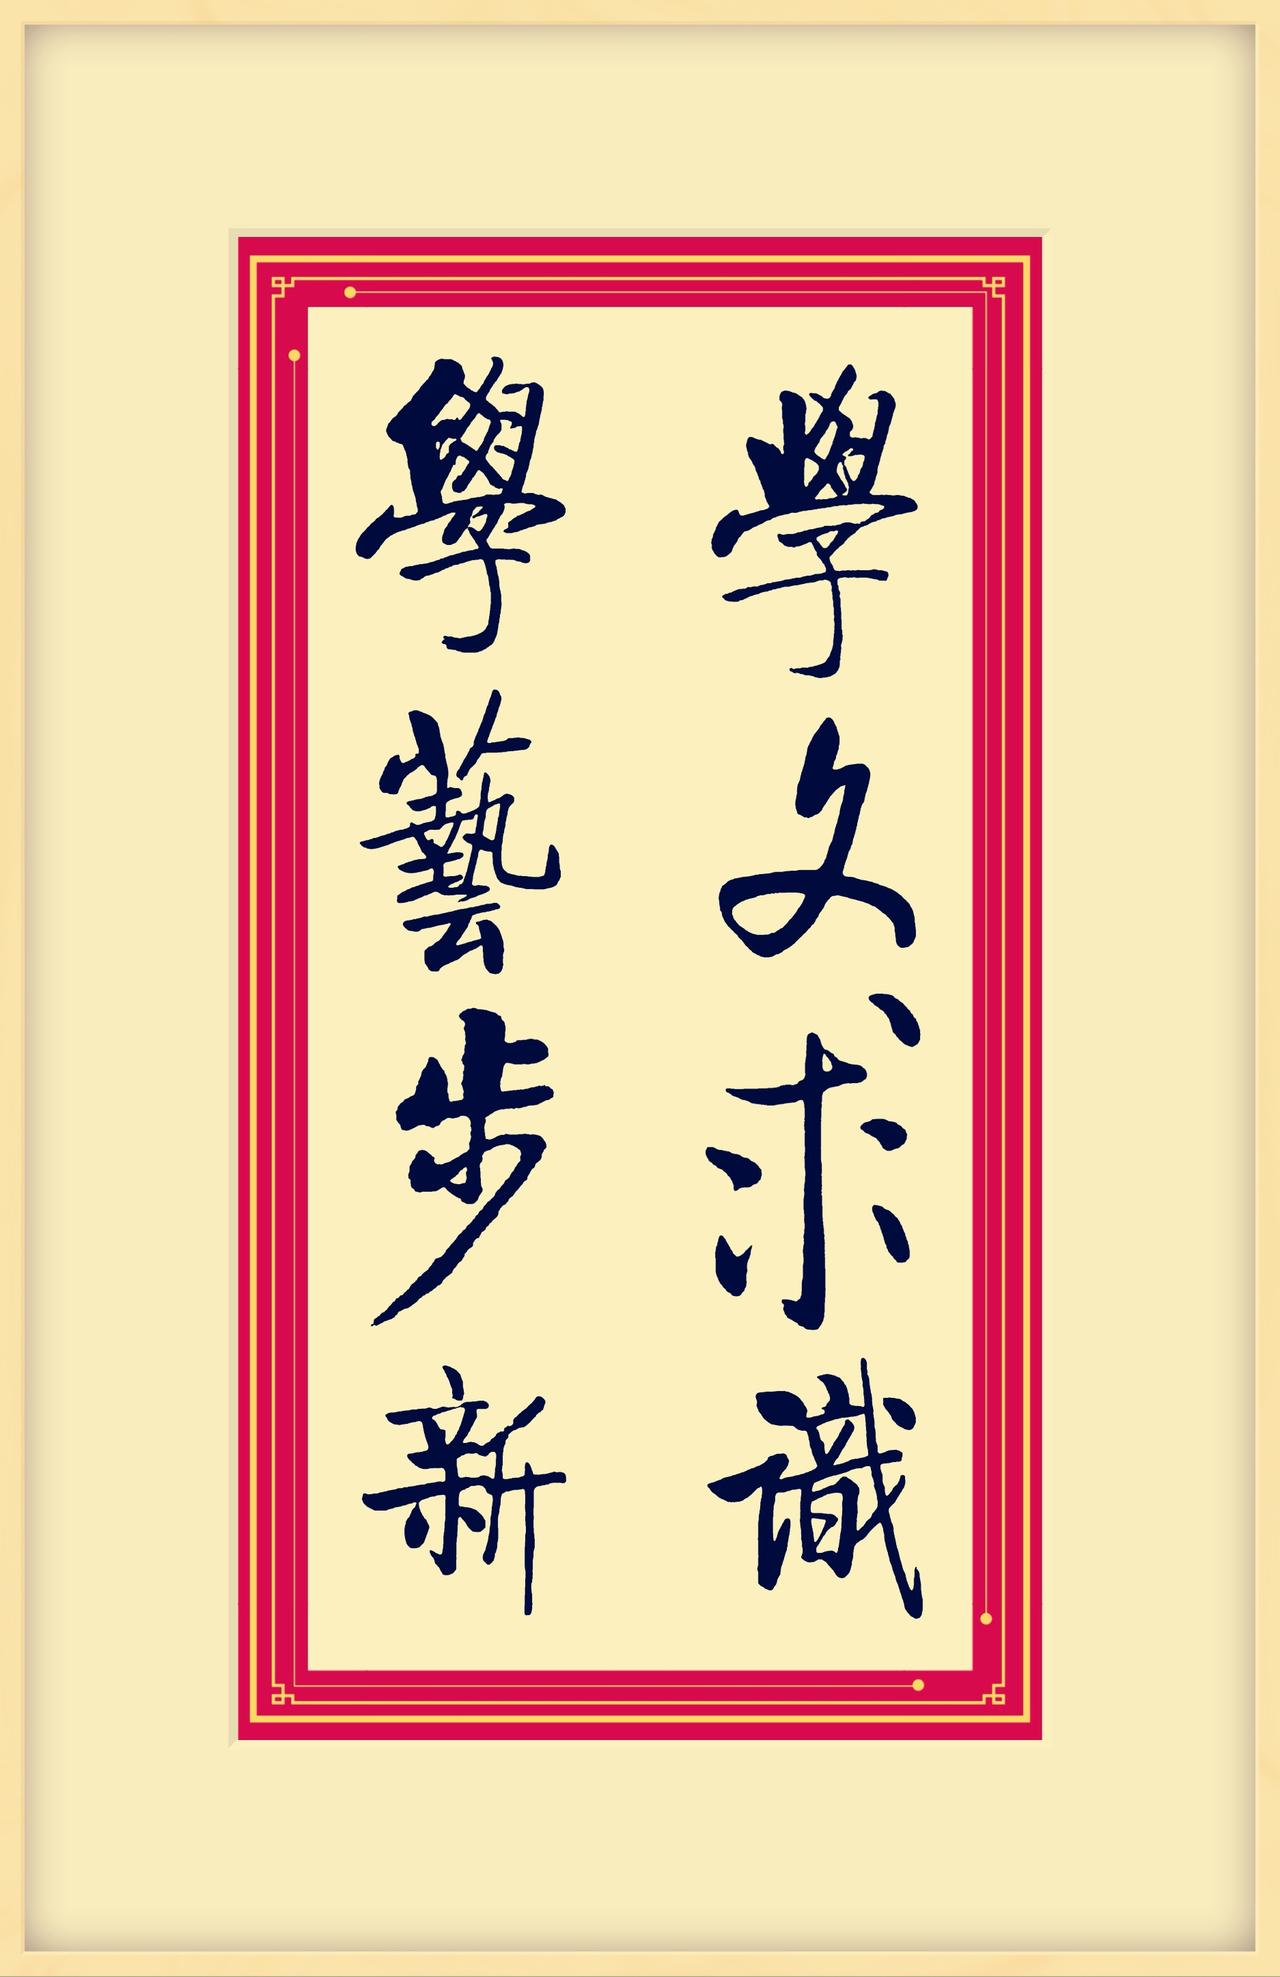 學文求識
學藝步新